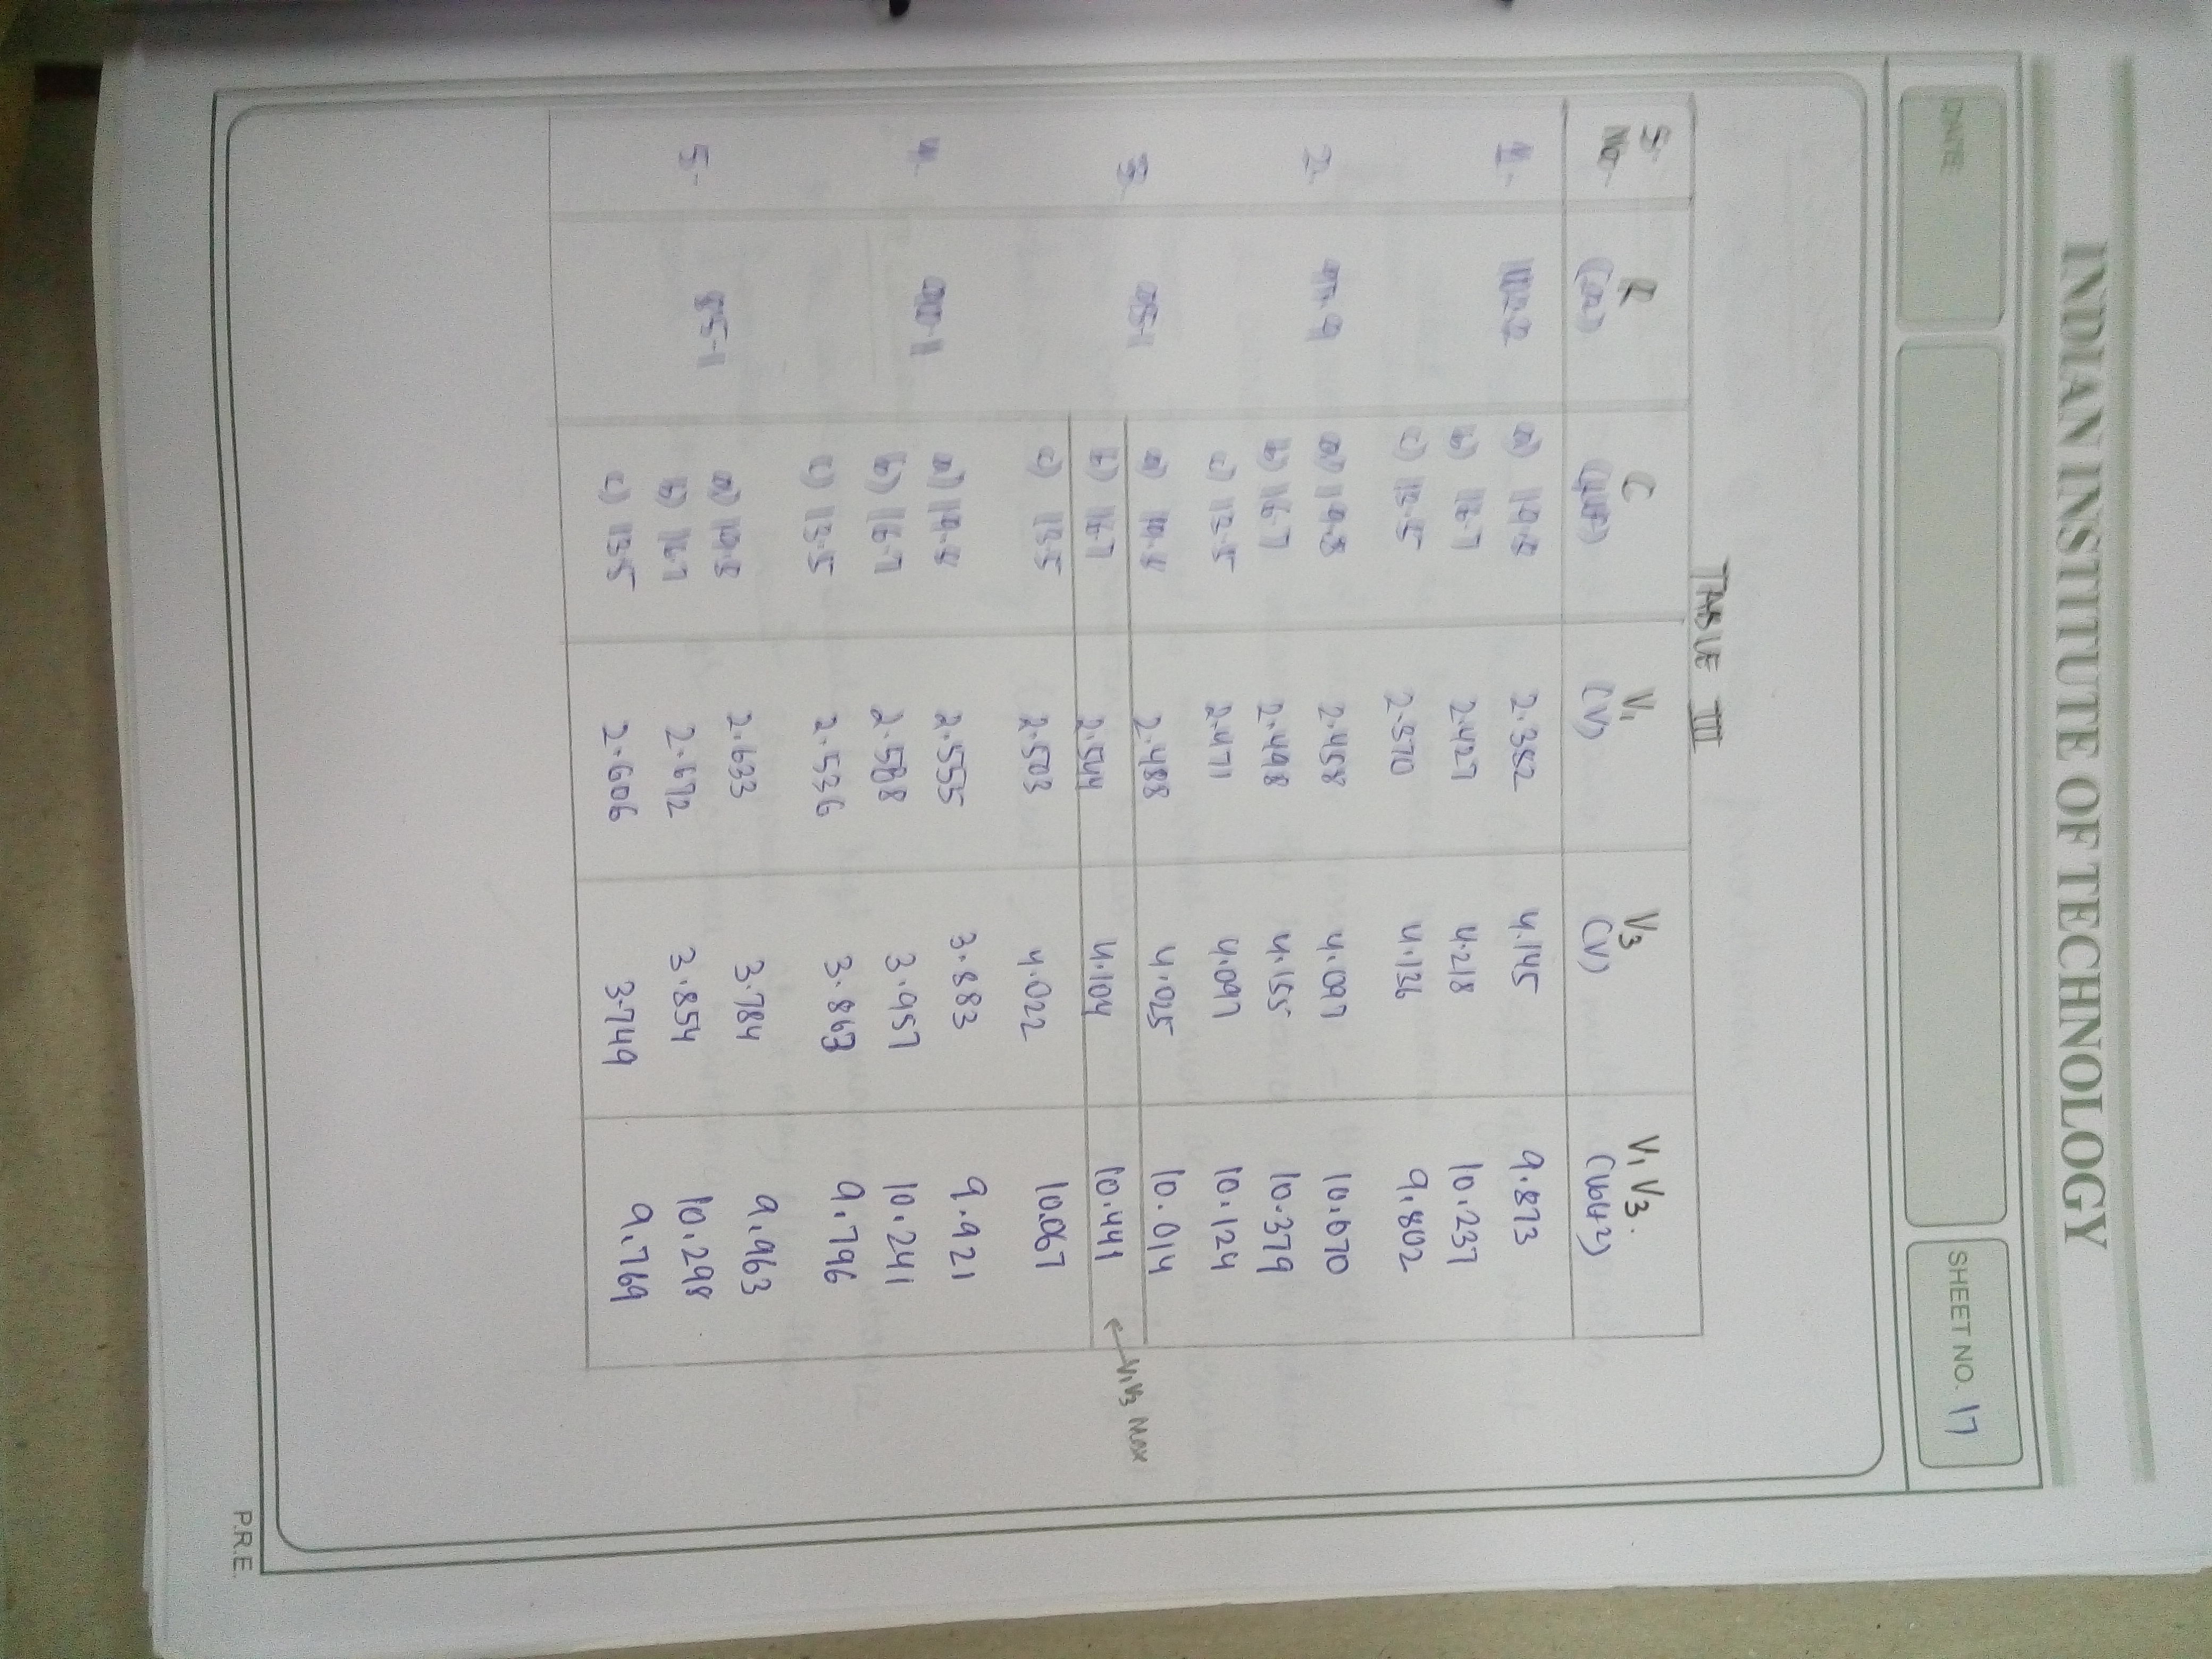 INDIAN INSTITUTE OF TECHNOLOGY
DATE
SHEET NO. 17
TABLE III
S. No. R C V1 V3 V1 V3.
(Ω) (μF) (V) (V) (Volt2)
1. a) 19.8 2.382 4.145 9.873
b) 16.7 2.427 4.218 10.237
c) 13.5 2.370 4.136 9.802
2. a) 19.8 2.458 4.097 10.070
b) 16.7 2.498 4.155 10.379
c) 13.5 2.471 4.097 10.124
3. 95.1 a) 19.8 2.488 4.025 10.014
b) 16.7 2.544 4.104 10.441 ← V1V3 Max
c) 13.5 2.503 4.022 10.067
4. 90.1 a) 19.8 2.555 3.883 9.921
b) 16.7 2.588 3.957 10.241
c) 13.5 2.536 3.863 9.796
5. 85.1 a) 19.8 2.633 3.784 9.963
b) 16.7 2.672 3.854 10.298
c) 13.5 2.606 3.749 9.769
P.R.E.